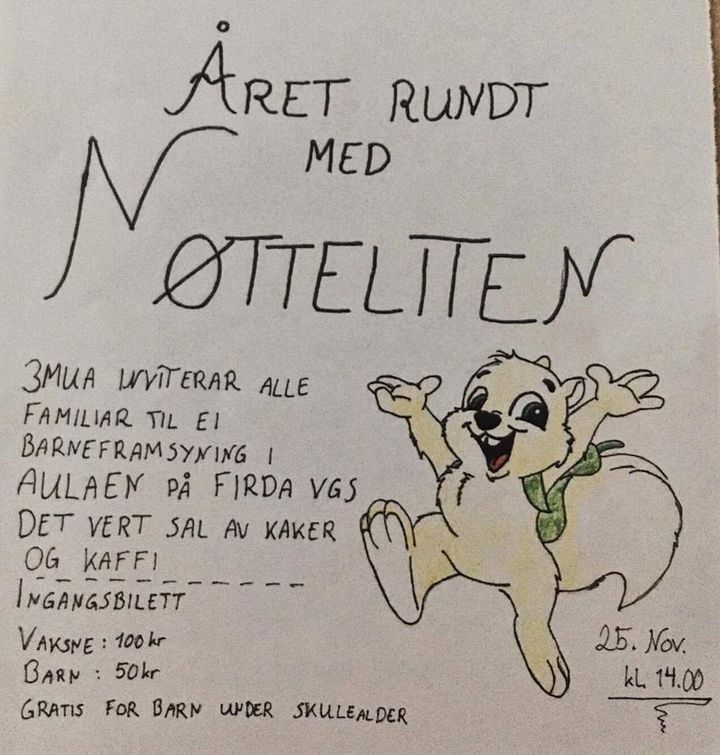 ÅRET RUNDT
MED
NØTTELITEN
3MUA INVITERAR ALLE
FAMILIAR TIL EI
BARNEFRAMSYNING I
AULAEN PÅ FIRDA VGS
DET VERT SAL AV KAKER
OG KAFFI
INGANGSBILETT
VAKSNE: 100 kr
BARN : 50 kr
GRATIS FOR BARN UNDER SKULEALDER
25. Nov.
kL 14.00